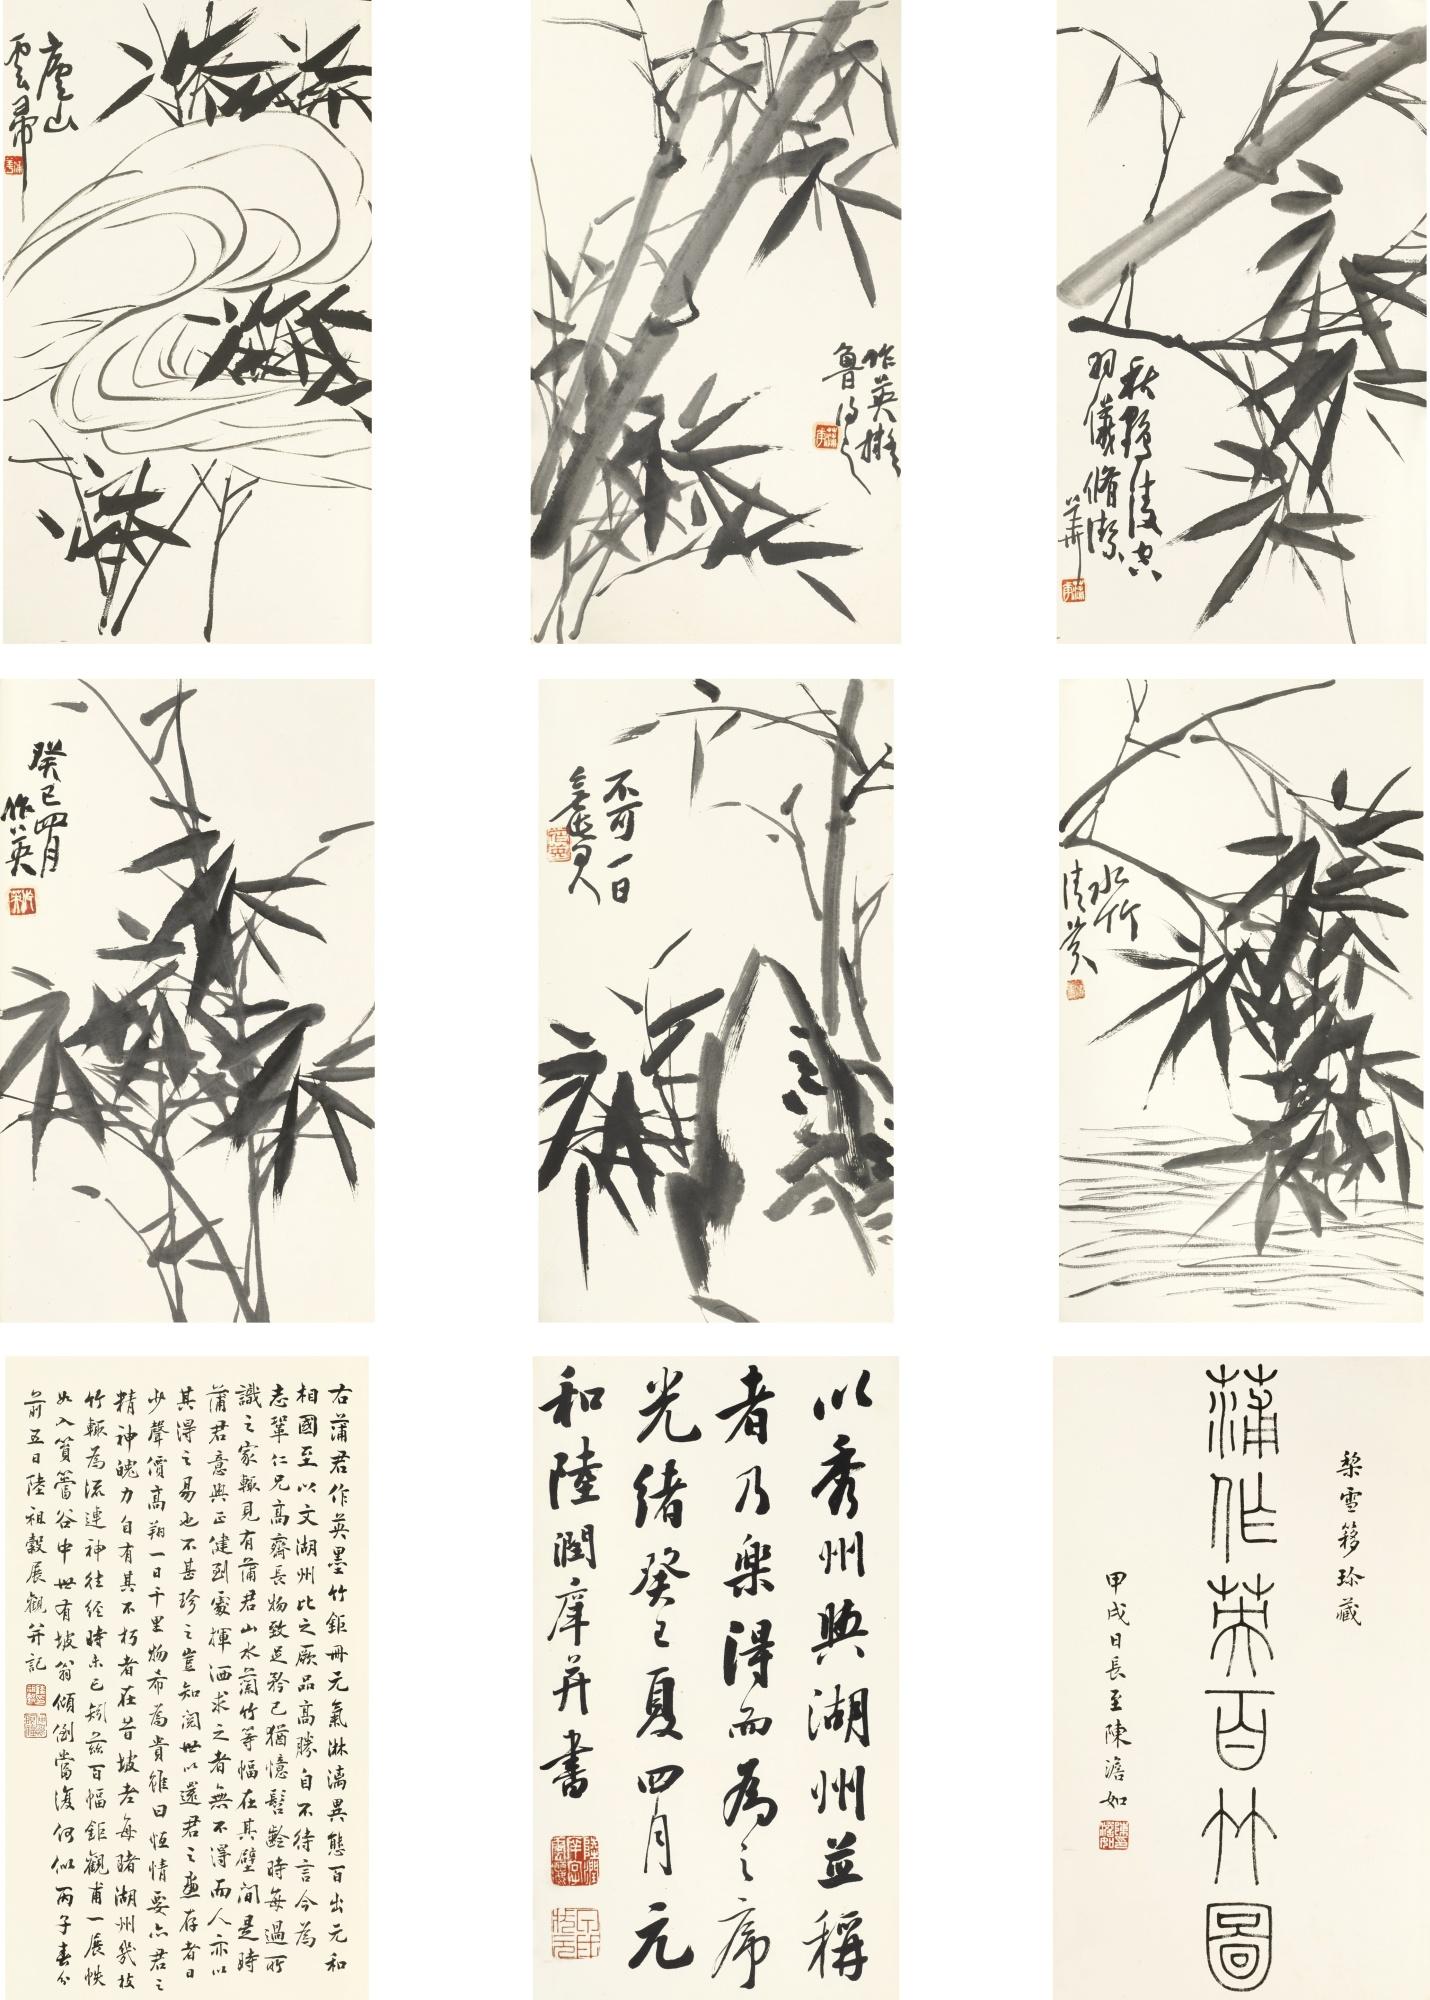 廬山
雲帚
作英擬
魯得之
秋鶴淩空
羽儀脩潔
癸巳四月
作英
不可一日
水竹
清芬
右蒲君作英墨竹鉅冊元氣淋漓異態百出元和
相國至以文湖州比之厥品高勝自不待言今為
志鞏仁兄高齋長物致足矜已猶憶髫齡時每過所
識之家輒見有蒲君山水蘭竹等幅在其壁間是時
蒲君意興正健到處揮洒求之者無不得而人亦以
其得之易也不甚珍之豈知閱世以還君之畫存者日
少聲價高翔一日千里物希為貴雖曰恆情要亦君之
精神魄力自有其不朽者在昔坡老每睹湖州幾枝
竹輒為流連神往經時未已矧茲百幅鉅觀甫一展帙
如入篔簹谷中世有坡翁傾倒當復何似丙子春分
前五日陸祖穀展觀并記
以秀州與湖州並稱
者乃樂得而為之序
光緒癸巳夏四月元
和陸潤庠并書
梨雪簃珍藏
蒲作英百竹圖
甲戌日長至陳澹如